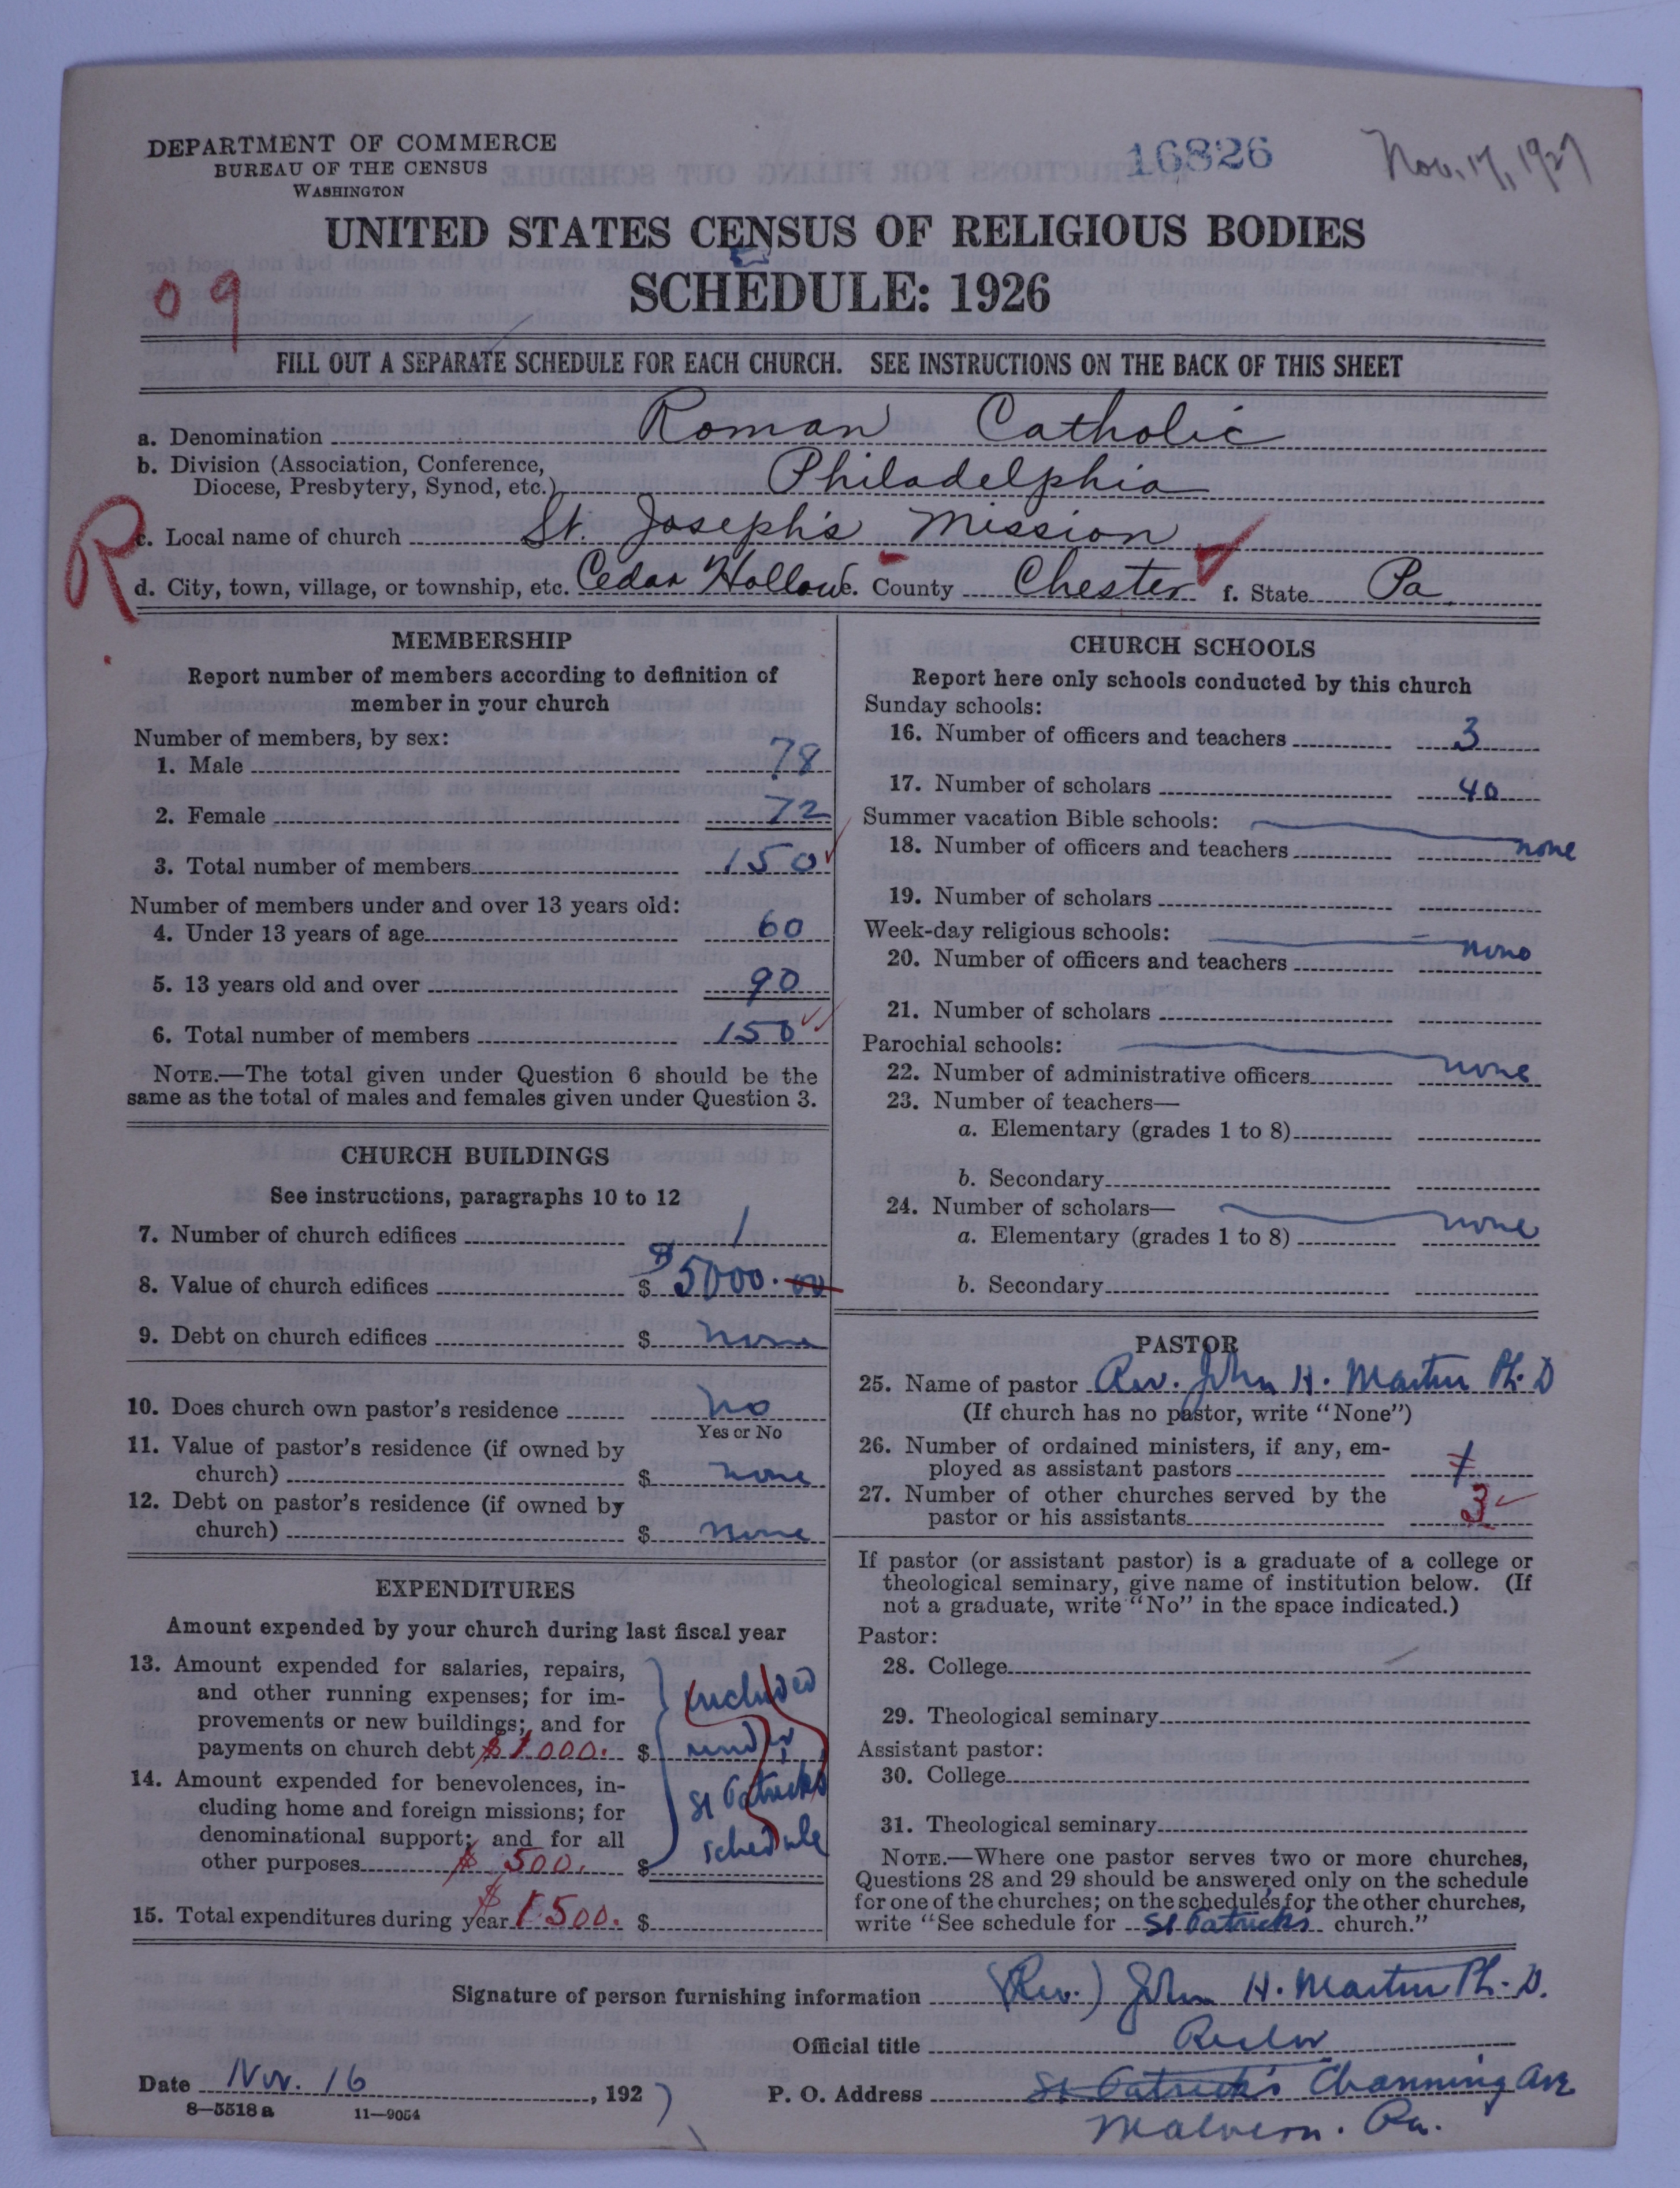 DEPARTMENT OF COMMERCE
BUREAU OF THE CENSUS
WASHINGTON
16826
Nov. 17, 1927
UNITED STATES CENSUS OF RELIGIOUS BODIES
SCHEDULE: 1926
09
FILL OUT A SEPARATE SCHEDULE FOR EACH CHURCH. SEE INSTRUCTIONS ON THE BACK OF THIS SHEET
a. Denomination Roman Catholic
b. Division (Association, Conference,
Diocese, Presbytery, Synod, etc.) Philadelphia
R
c. Local name of church St. Joseph's Mission
d. City, town, village, or township, etc. Cedar Hollow e. County Chester f. State Pa.
MEMBERSHIP
Report number of members according to definition of
member in your church
Number of members, by sex:
1. Male 78
2. Female 72
3. Total number of members 150
Number of members under and over 13 years old:
4. Under 13 years of age 60
5. 13 years old and over 90
6. Total number of members 150
NOTE.—The total given under Question 6 should be the
same as the total of males and females given under Question 3.
CHURCH BUILDINGS
See instructions, paragraphs 10 to 12
7. Number of church edifices 1
8. Value of church edifices $ $5000.00
9. Debt on church edifices $ none
10. Does church own pastor's residence no
Yes or No
11. Value of pastor's residence (if owned by
church) $ none
12. Debt on pastor's residence (if owned by
church) $ none
EXPENDITURES
Amount expended by your church during last fiscal year
13. Amount expended for salaries, repairs,
and other running expenses; for im-
provements or new buildings; and for
payments on church debt $1000. $
14. Amount expended for benevolences, in-
cluding home and foreign missions; for
denominational support; and for all
other purposes $ 500. $
included
under
St Patricks
schedule
15. Total expenditures during year $1500. $
CHURCH SCHOOLS
Report here only schools conducted by this church
Sunday schools:
16. Number of officers and teachers 3
17. Number of scholars 40
Summer vacation Bible schools:
18. Number of officers and teachers none
19. Number of scholars
Week-day religious schools:
20. Number of officers and teachers none
21. Number of scholars
Parochial schools:
22. Number of administrative officers none
23. Number of teachers—
a. Elementary (grades 1 to 8)
b. Secondary
24. Number of scholars—
a. Elementary (grades 1 to 8) none
b. Secondary
PASTOR
25. Name of pastor Rev. John H. Martin Ph. D
(If church has no pastor, write "None")
26. Number of ordained ministers, if any, em-
ployed as assistant pastors 1
27. Number of other churches served by the
pastor or his assistants 3
If pastor (or assistant pastor) is a graduate of a college or
theological seminary, give name of institution below. (If
not a graduate, write "No" in the space indicated.)
Pastor:
28. College
29. Theological seminary
Assistant pastor:
30. College
31. Theological seminary
NOTE.—Where one pastor serves two or more churches,
Questions 28 and 29 should be answered only on the schedule
for one of the churches; on the schedules for the other churches,
write "See schedule for St Patricks church."
Signature of person furnishing information (Rev.) John H. Martin Ph. D.
Official title Rector
Date Nov. 16, 1927 P. O. Address St Patrick's Channing Ave
8—5518 a 11—9054
Malvern. Pa.